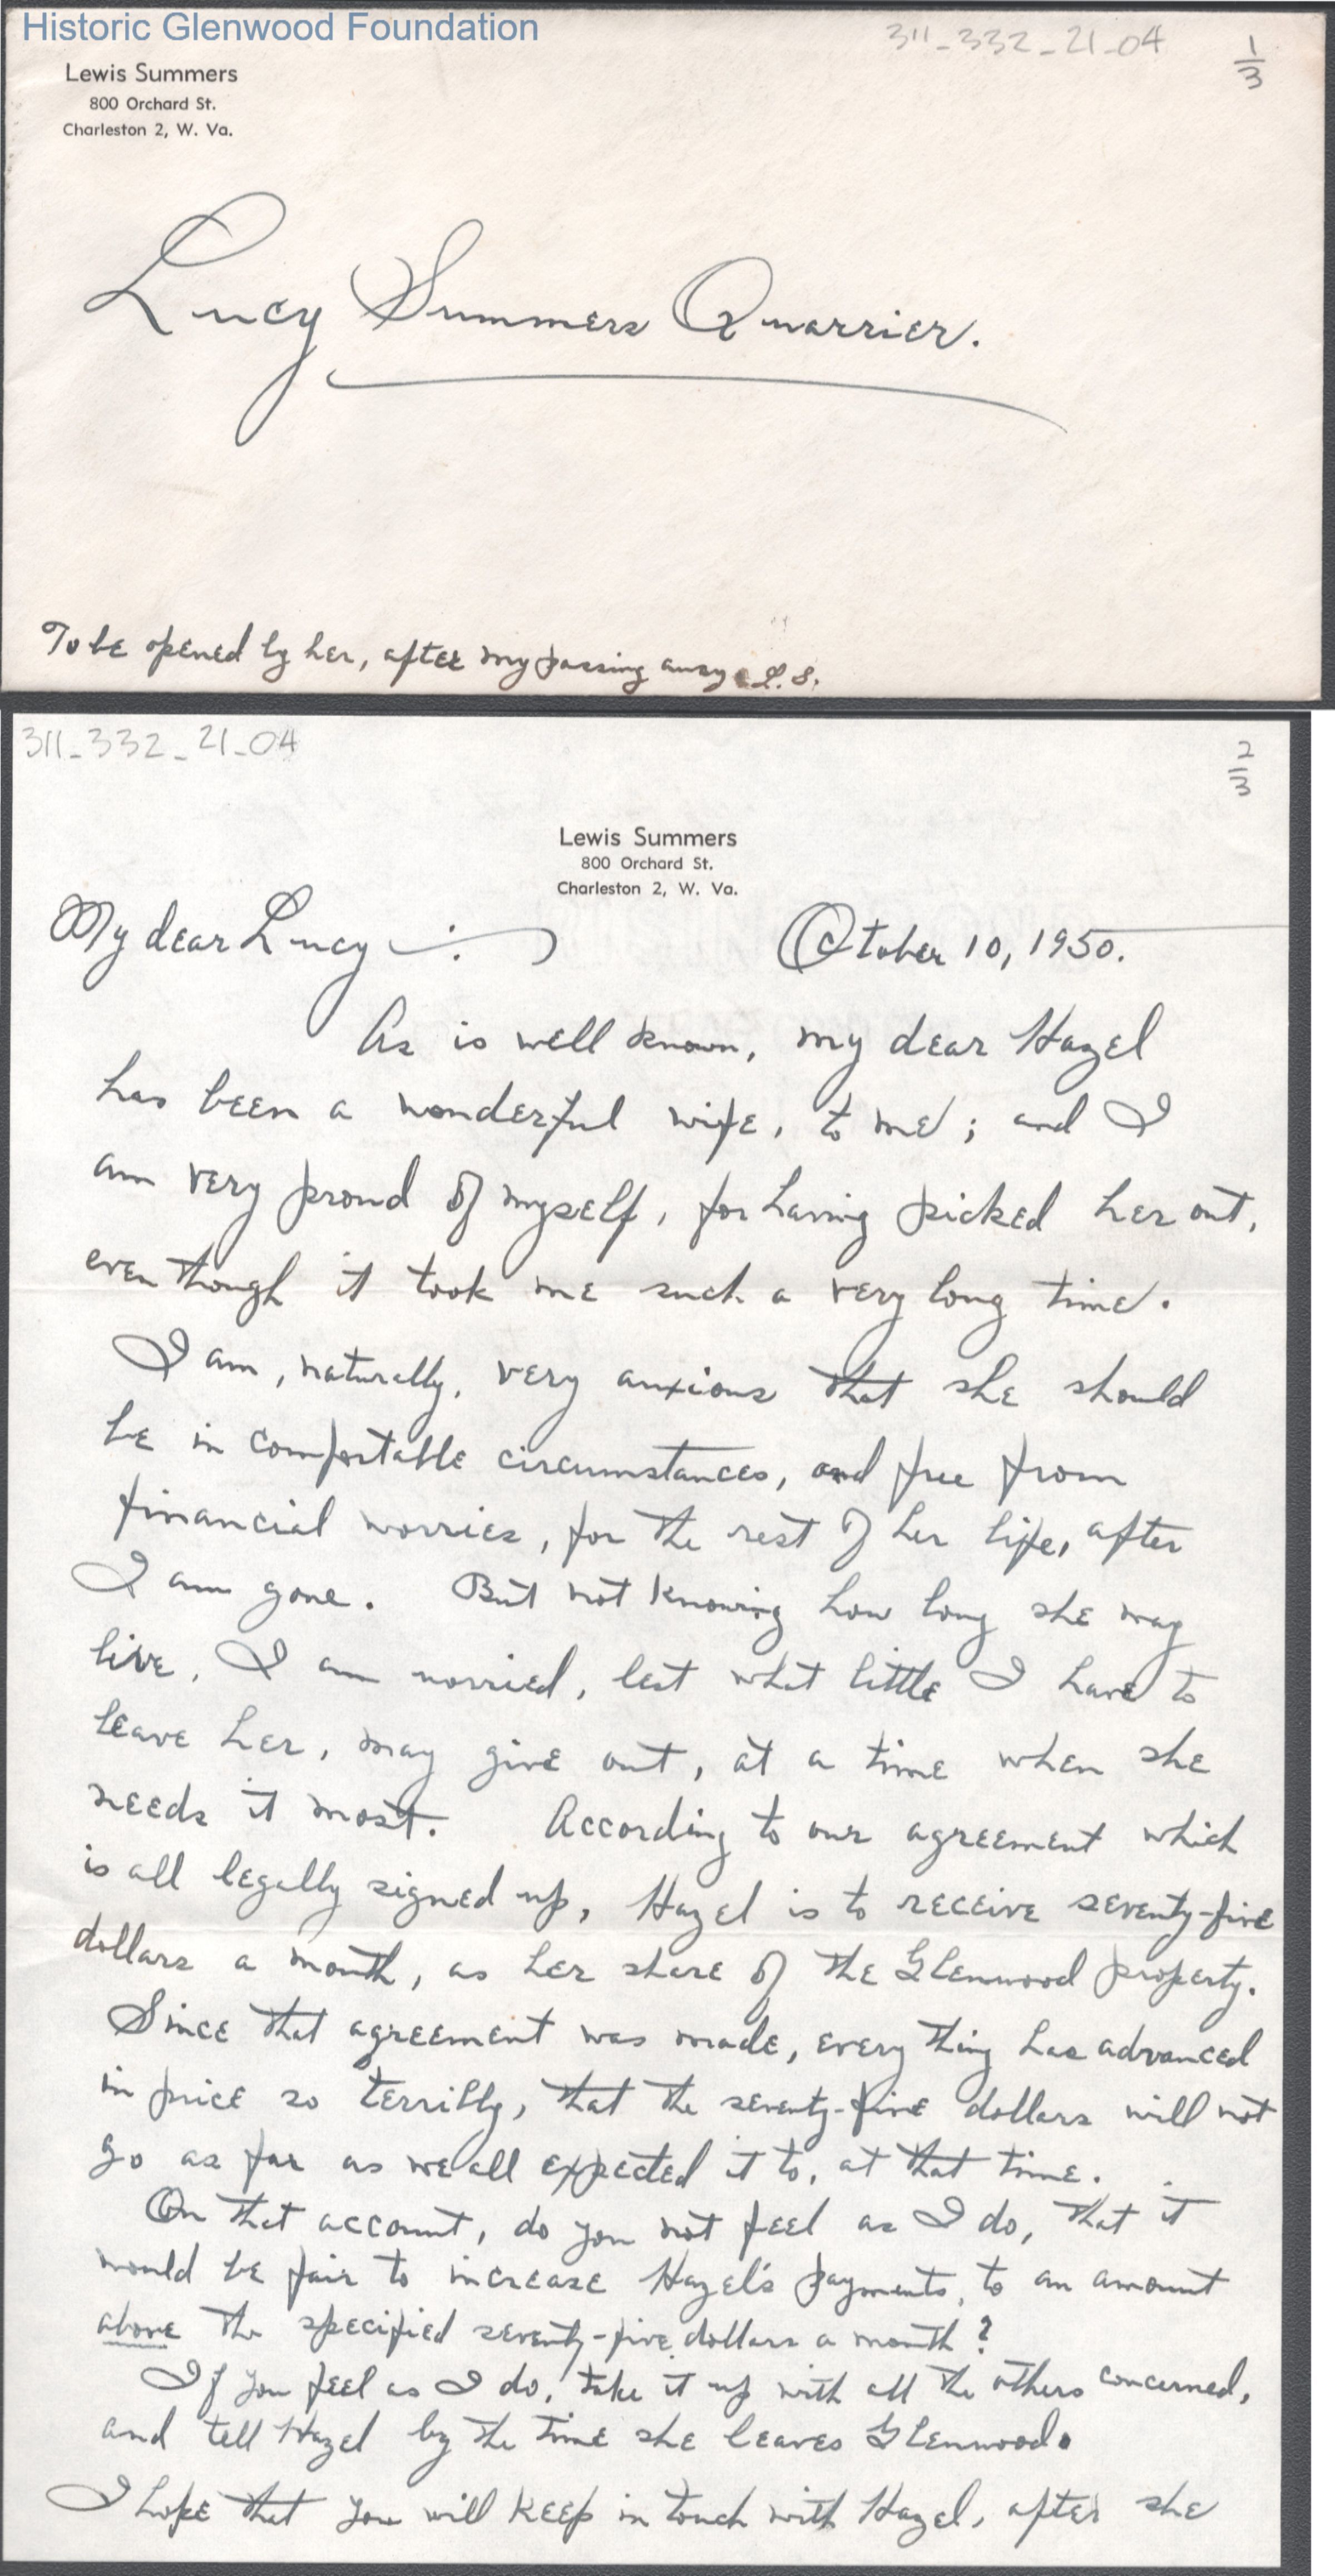 Historic Glenwood Foundation
311_332_21_04
1/3
Lewis Summers
800 Orchard St.
Charleston 2, W. Va.
Lucy Summers Quarrier.
To be opened by her, after my passing away. L. S.
311_332_21_04
2/3
Lewis Summers
800 Orchard St.
Charleston 2, W. Va.
My dear Lucy — : October 10, 1950.
As is well known, my dear Hazel
has been a wonderful wife, to me; and I
am very proud of myself, for having picked her out,
even though it took me such a very long time.
I am, naturally, very anxious that she should
be in comfortable circumstances, and free from
financial worries, for the rest of her life, after
I am gone. But not knowing how long she may
live, I am worried, lest what little I have to
leave her, may give out, at a time when she
needs it most. According to our agreement which
is all legally signed up, Hazel is to receive seventy-five
dollars a month, as her share of the Glenwood property.
Since that agreement was made, every thing has advanced
in price so terribly, that the seventy-five dollars will not
go as far as we all expected it to, at that time.
On that account, do you not feel as I do, that it
would be fair to increase Hazel's payments, to an amount
above the specified seventy-five dollars a month?
If you feel as I do, take it up with all the others concerned,
and tell Hazel by the time she leaves Glenwood.
I hope that you will keep in touch with Hazel, after she